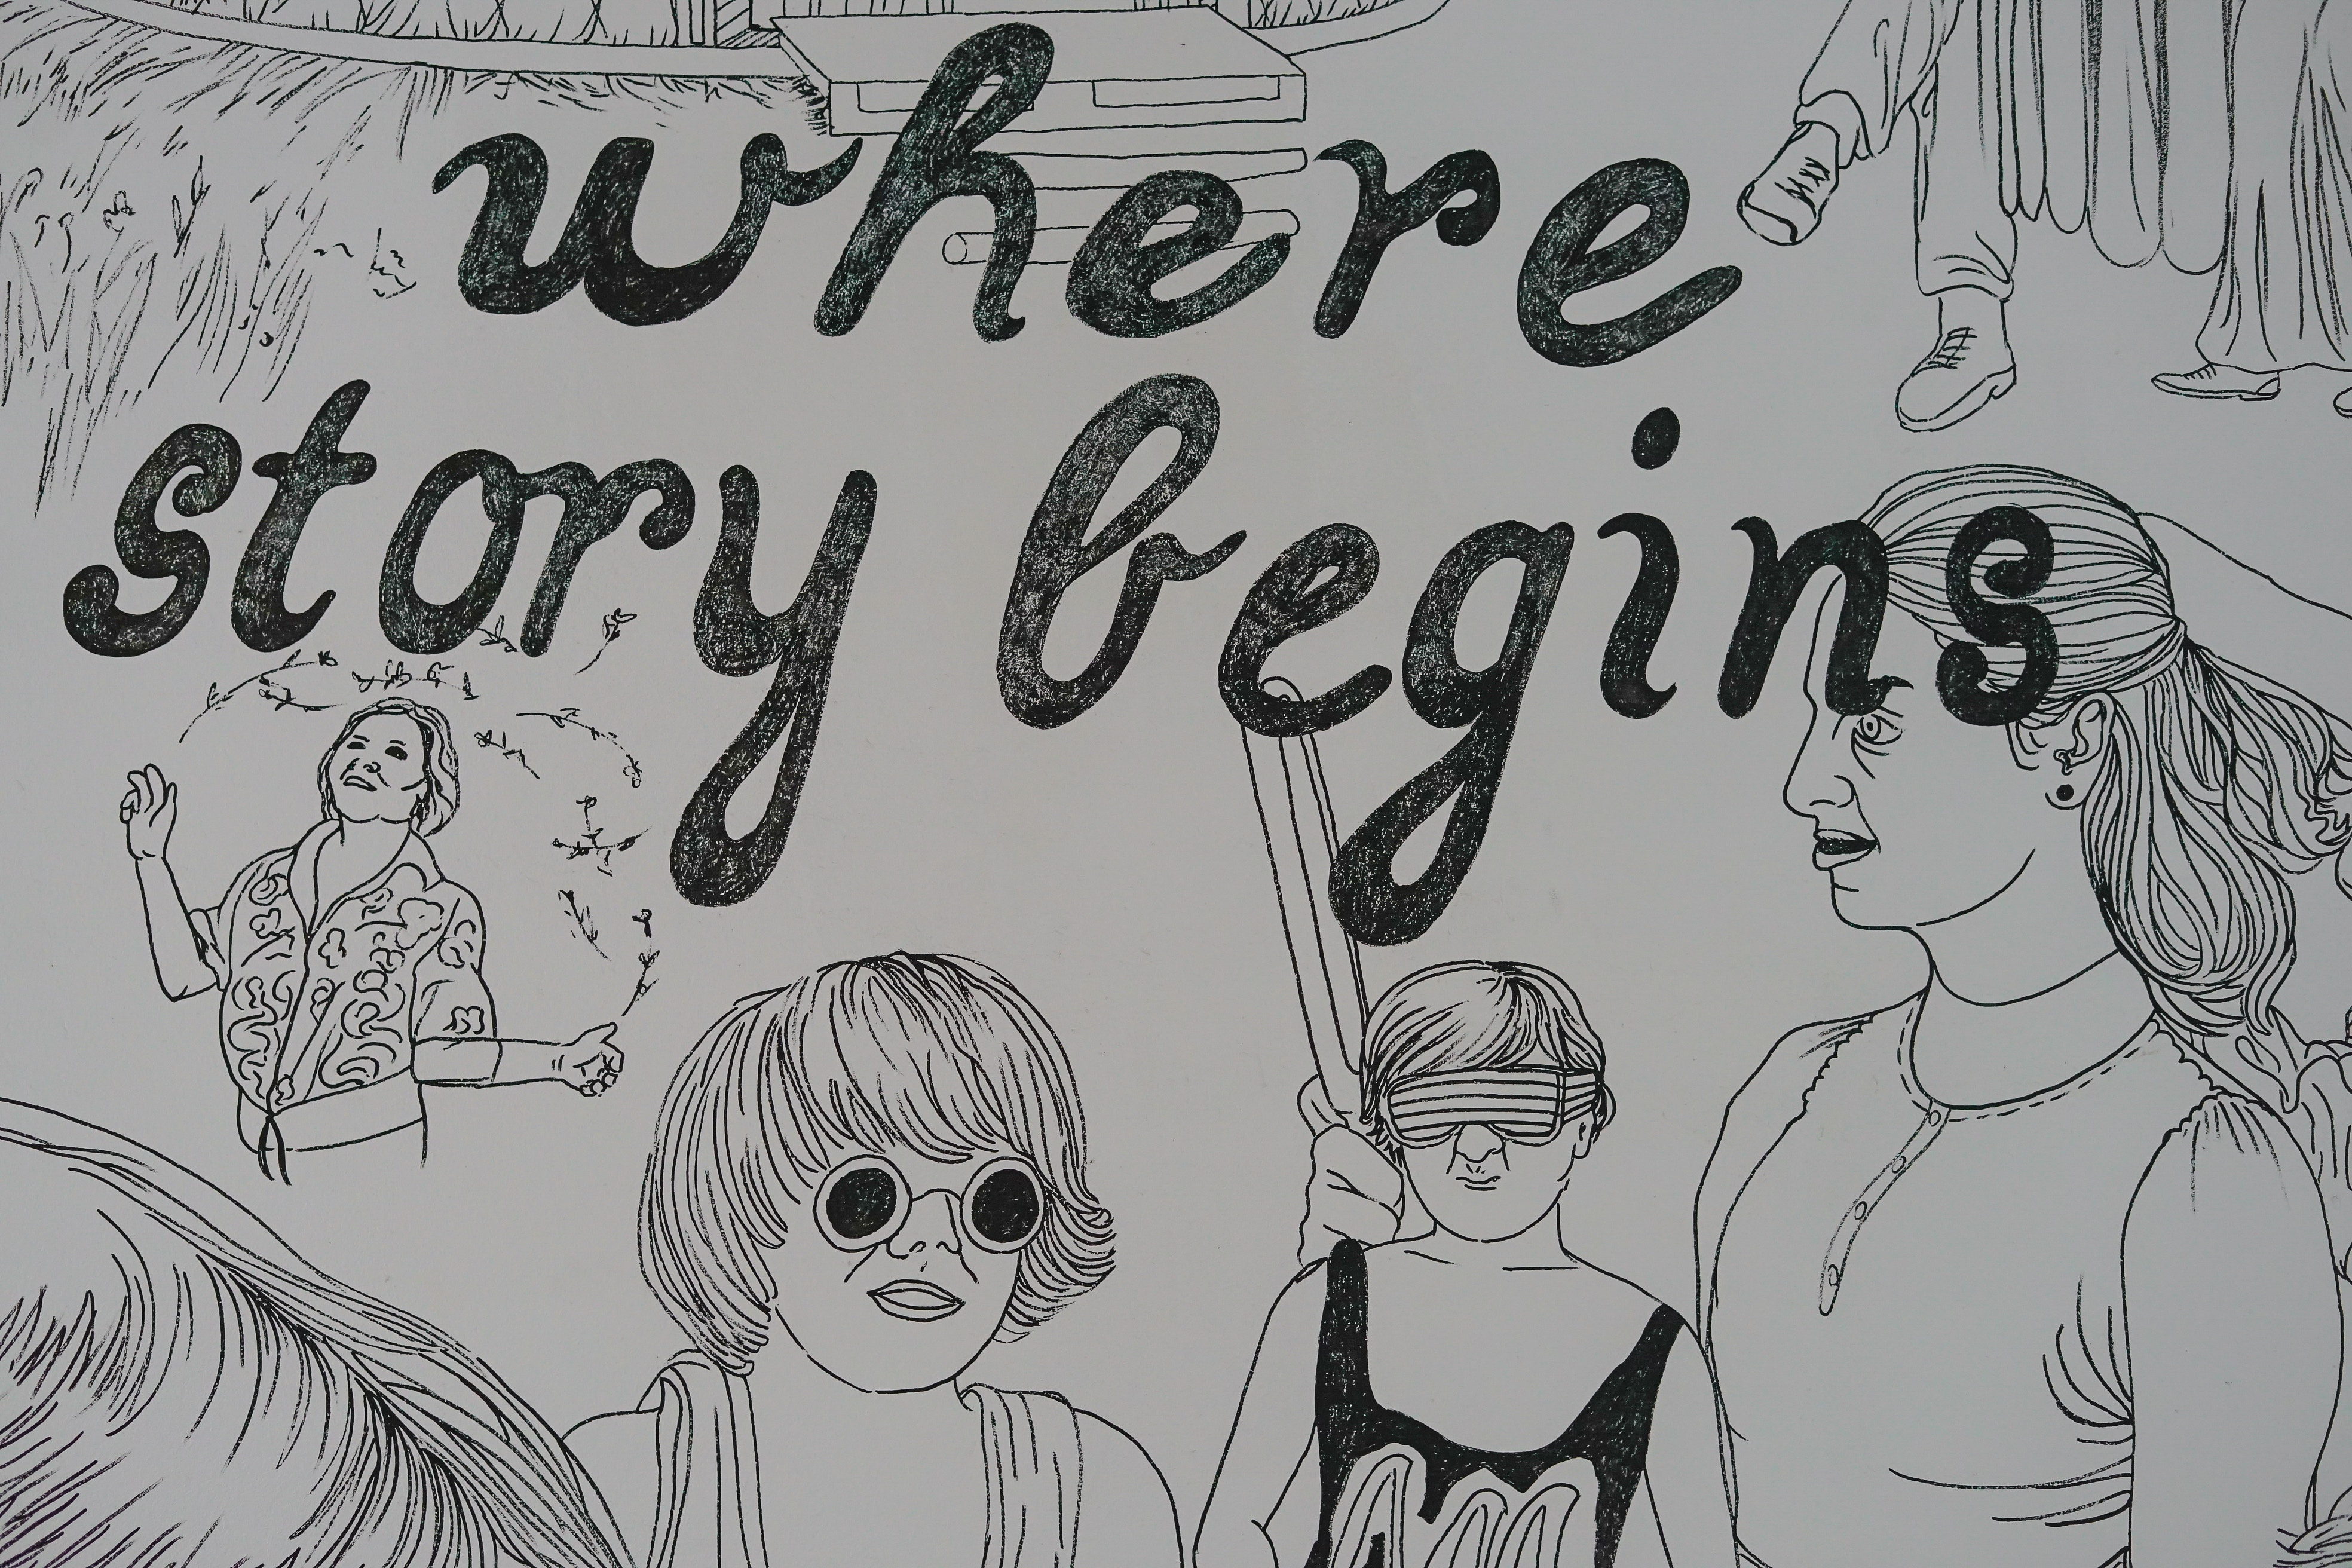 where
story begins